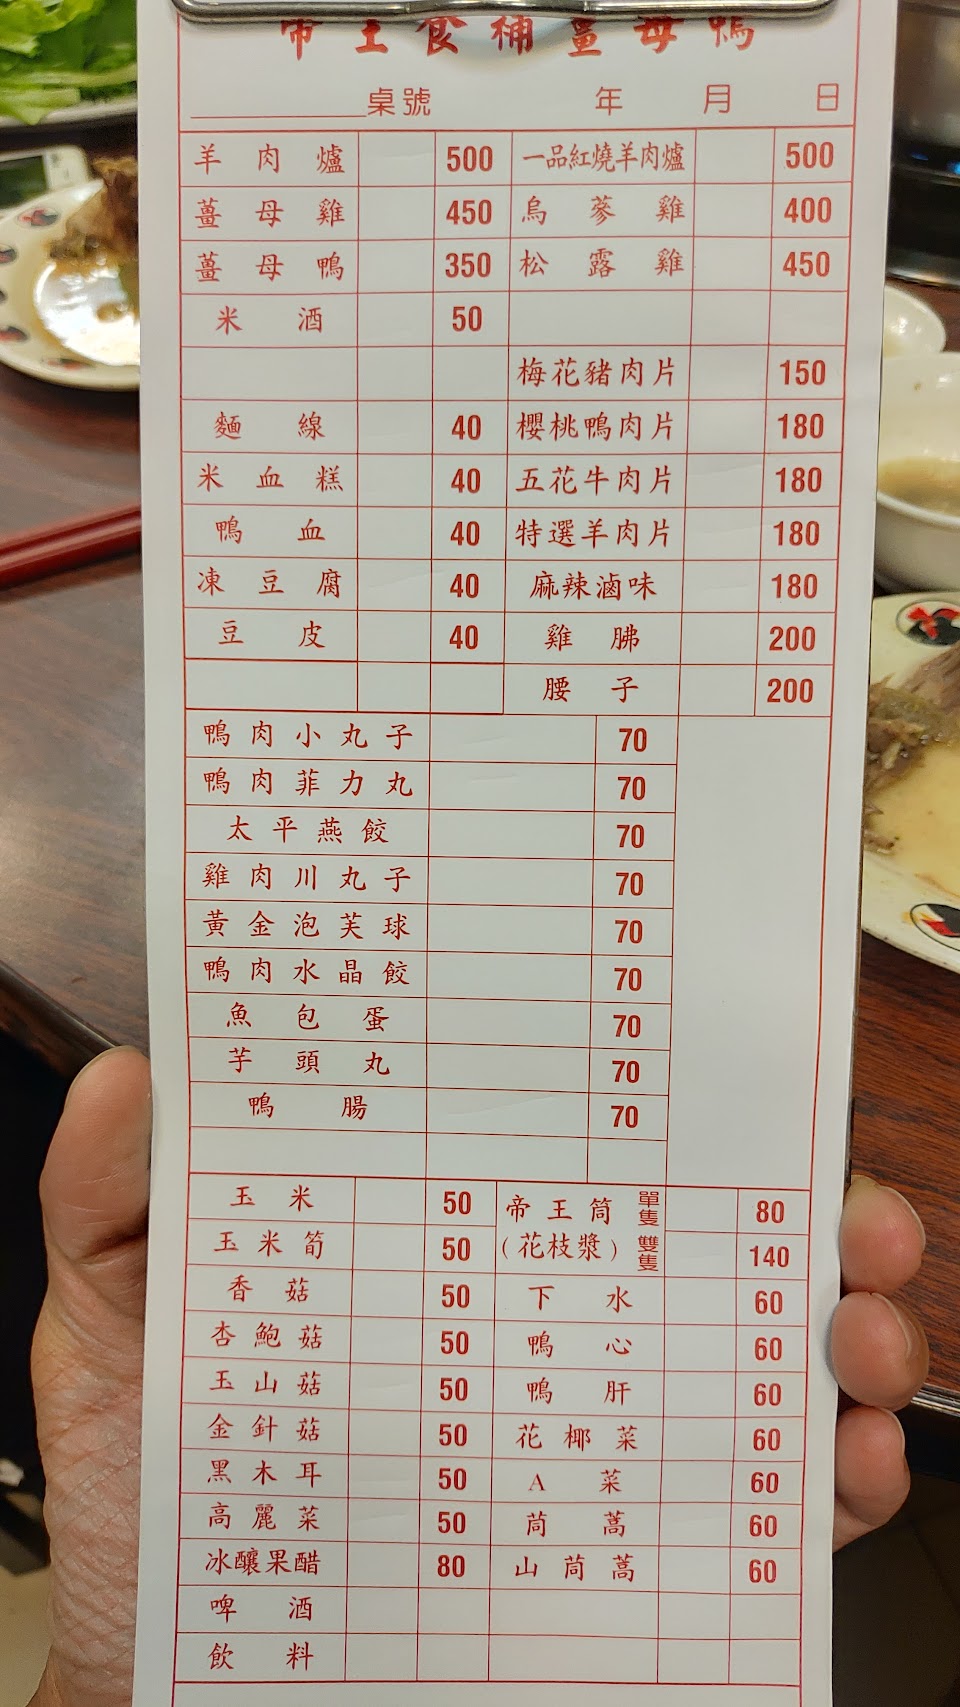 帝王食補薑母鴨
桌號 年 月 日
羊肉爐 500 一品紅燒羊肉爐 500
薑母雞 450 烏蔘雞 400
薑母鴨 350 松露雞 450
米酒 50
梅花豬肉片 150
麵線 40 櫻桃鴨肉片 180
米血糕 40 五花牛肉片 180
鴨血 40 特選羊肉片 180
凍豆腐 40 麻辣滷味 180
豆皮 40 雞胇 200
腰子 200
鴨肉小丸子 70
鴨肉菲力丸 70
太平燕餃 70
雞肉川丸子 70
黃金泡芙球 70
鴨肉水晶餃 70
魚包蛋 70
芋頭丸 70
鴨腸 70
玉米 50 帝王筒 單隻 80
玉米筍 50 (花枝漿) 雙隻 140
香菇 50 下水 60
杏鮑菇 50 鴨心 60
玉山菇 50 鴨肝 60
金針菇 50 花椰菜 60
黑木耳 50 A菜 60
高麗菜 50 茼蒿 60
冰釀果醋 80 山茼蒿 60
啤酒
飲料